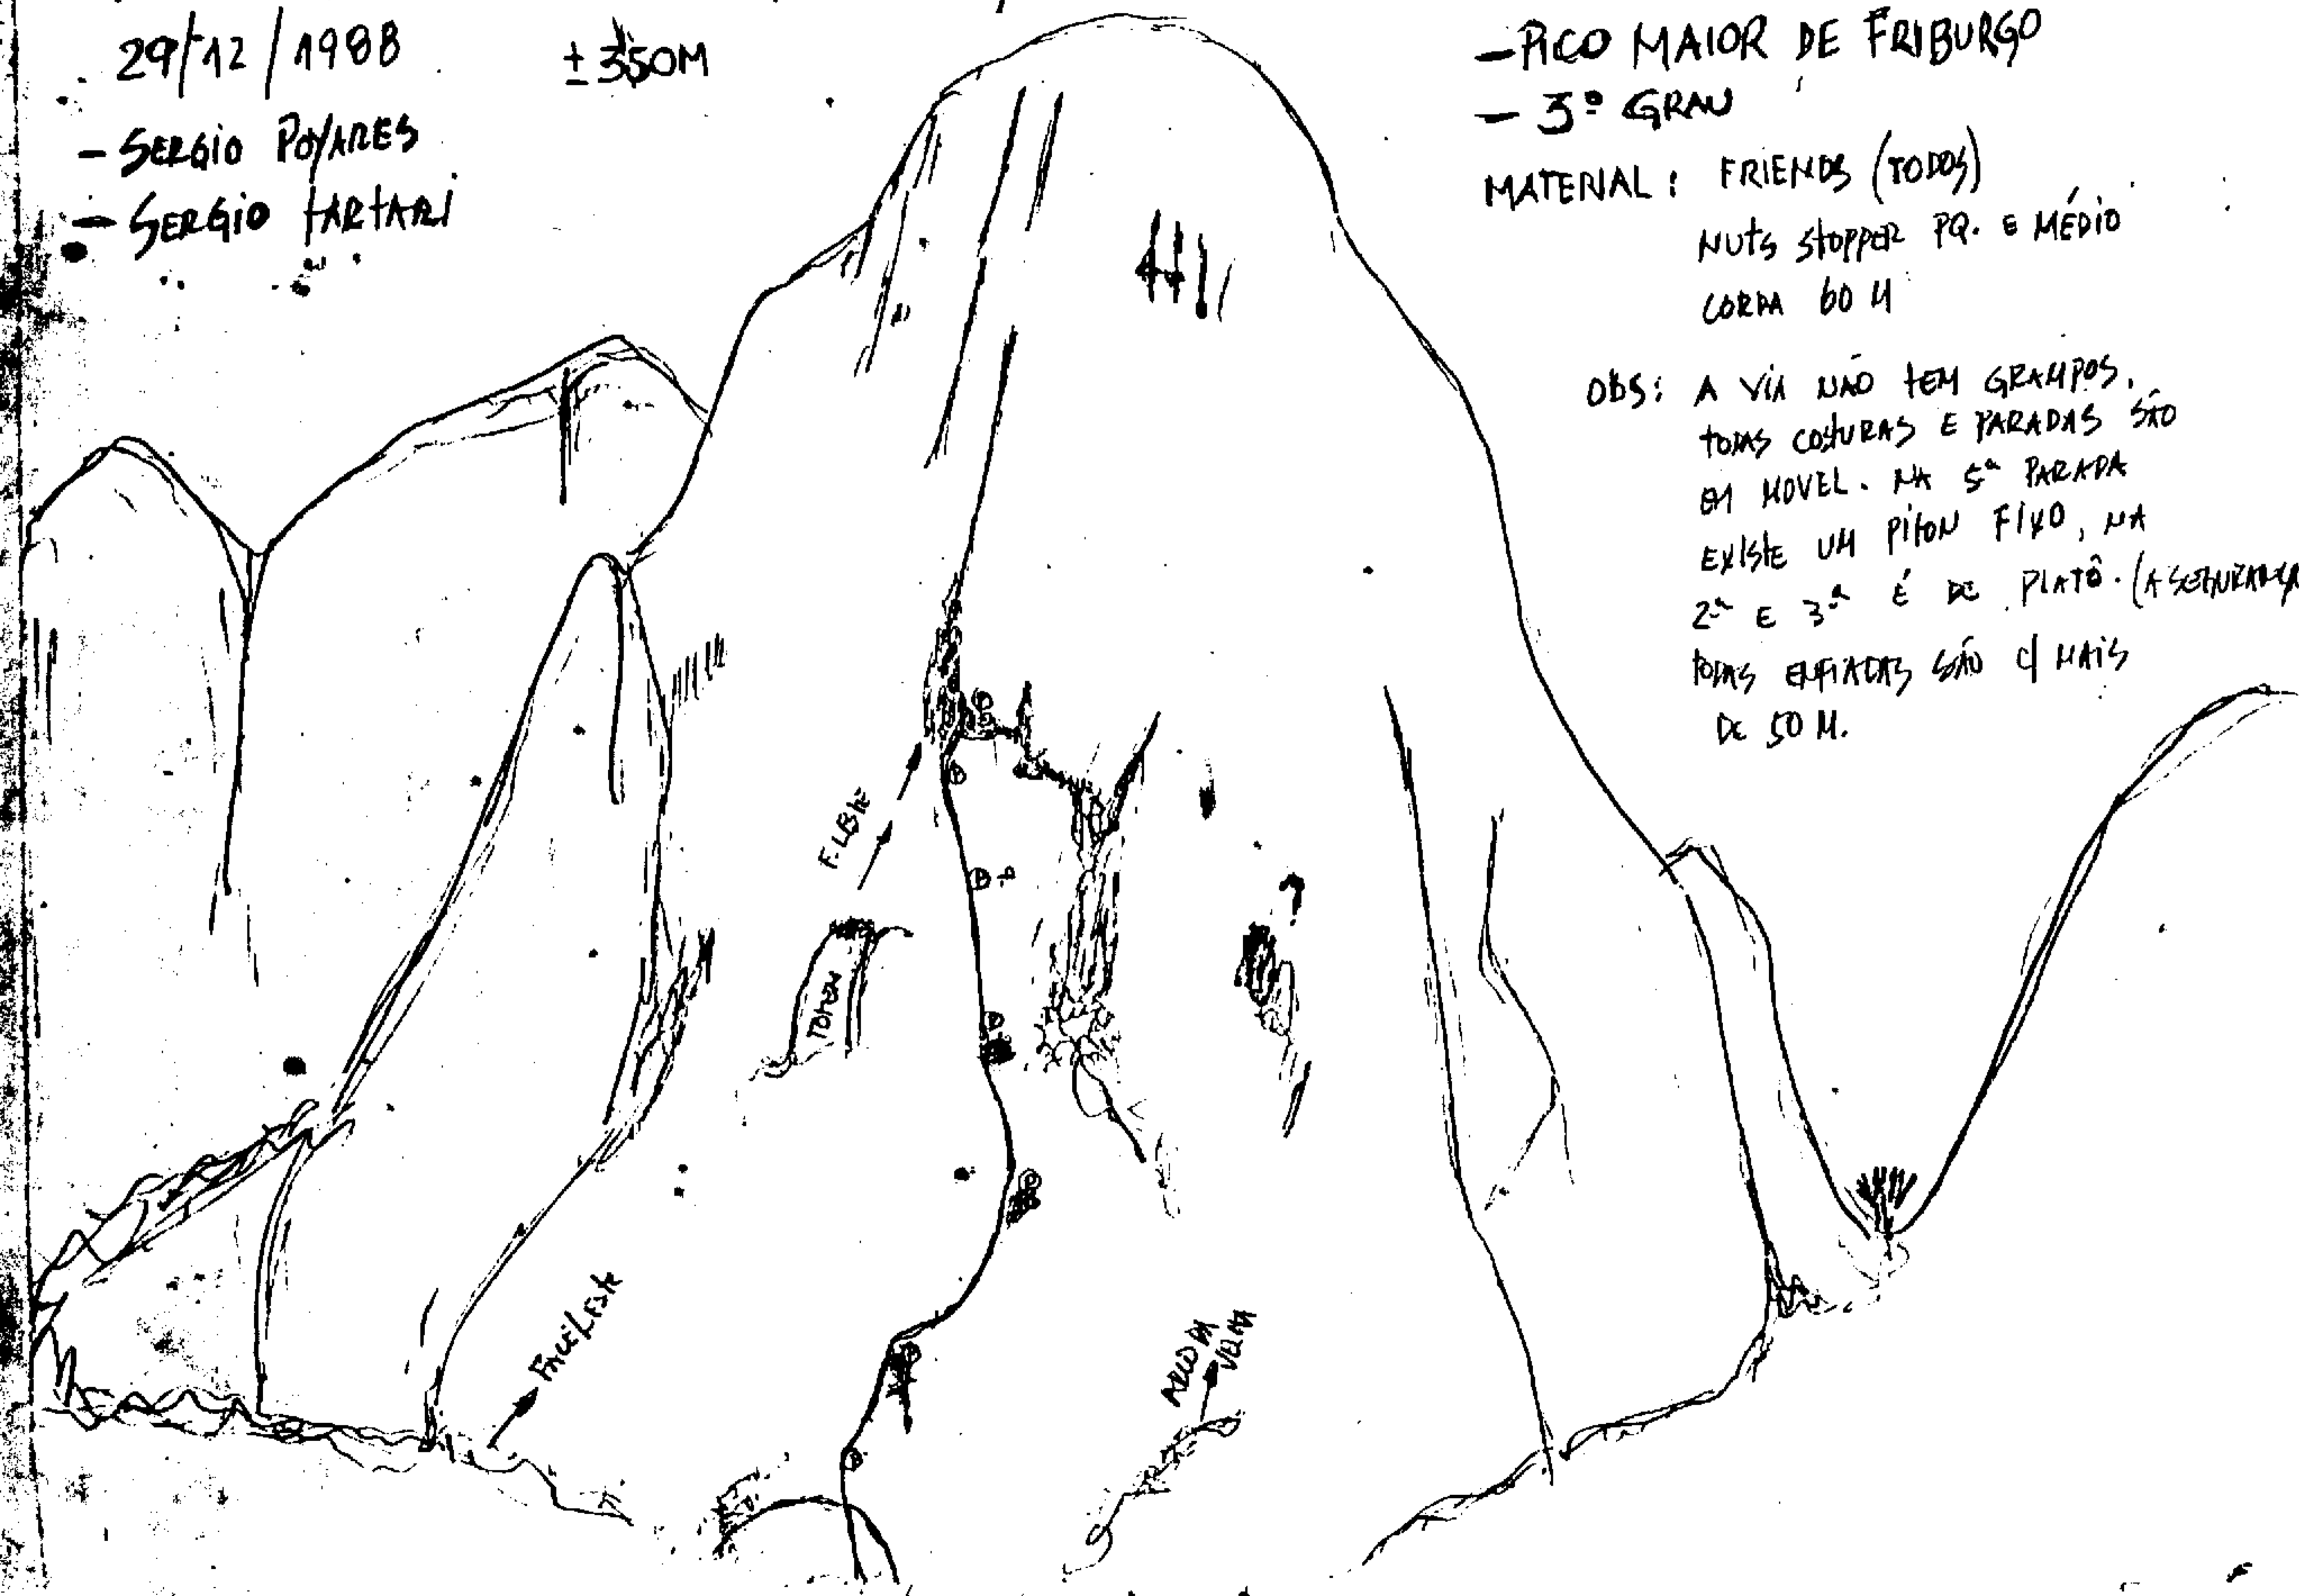 29/12/1988
± 350M
- SERGIO POYARES
- SERGIO TARTARI
- PICO MAIOR DE FRIBURGO
- 3º GRAU
MATERIAL: FRIENDS (TODOS)
NUTS STOPPER PQ. E MÉDIO
CORDA 60 M
OBS: A VIA NÃO TEM GRAMPOS.
TODAS COSTURAS E PARADAS SÃO
EM MOVEL. NA 5ª PARADA
EXISTE UM PITON FIXO, NA
2ª E 3ª É DE PLATÔ. (A SEGURANÇA
TODAS ENFIADAS SÃO C/ MAIS
DE 50 M.
F. LESTE
TOTEM
FACE LESTE
ARCO DA
VELHA